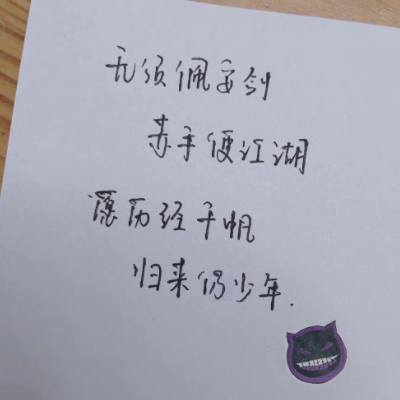 无须佩妥剑
赤手便江湖
愿历经千帆
归来仍少年.